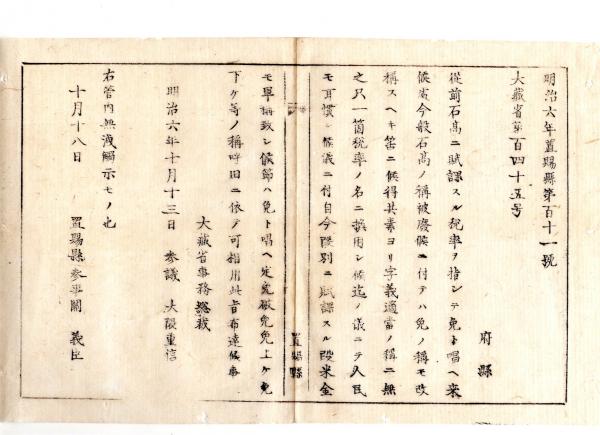 明治六年置賜縣第百十一號
大藏省第百四十五号
府縣
從前石高ニ賦課スル税率ヲ指シテ免ト唱ヘ来
候處今般石高ノ稱被廢候ニ付テハ免ノ稱モ改
稱スヘキ筈ニ候得共素ヨリ字義適當ノ稱ニ無
之只一箇税率ノ名ニ換用シ候迄ノ儀ニテ人民
モ耳慣シ候儀ニ付自今段別ニ賦課スル段米金
置賜縣
モ畢稱致シ候節ハ免ト唱ヘ定免破免免上ケ免
下ケ等ノ稱呼旧ニ依テ可指用此旨布達候事
大藏省事務総裁
明治六年十月十三日 参議 大隈重信
右管内無洩觸示モノ也
十月十八日 置賜縣参事関 義臣